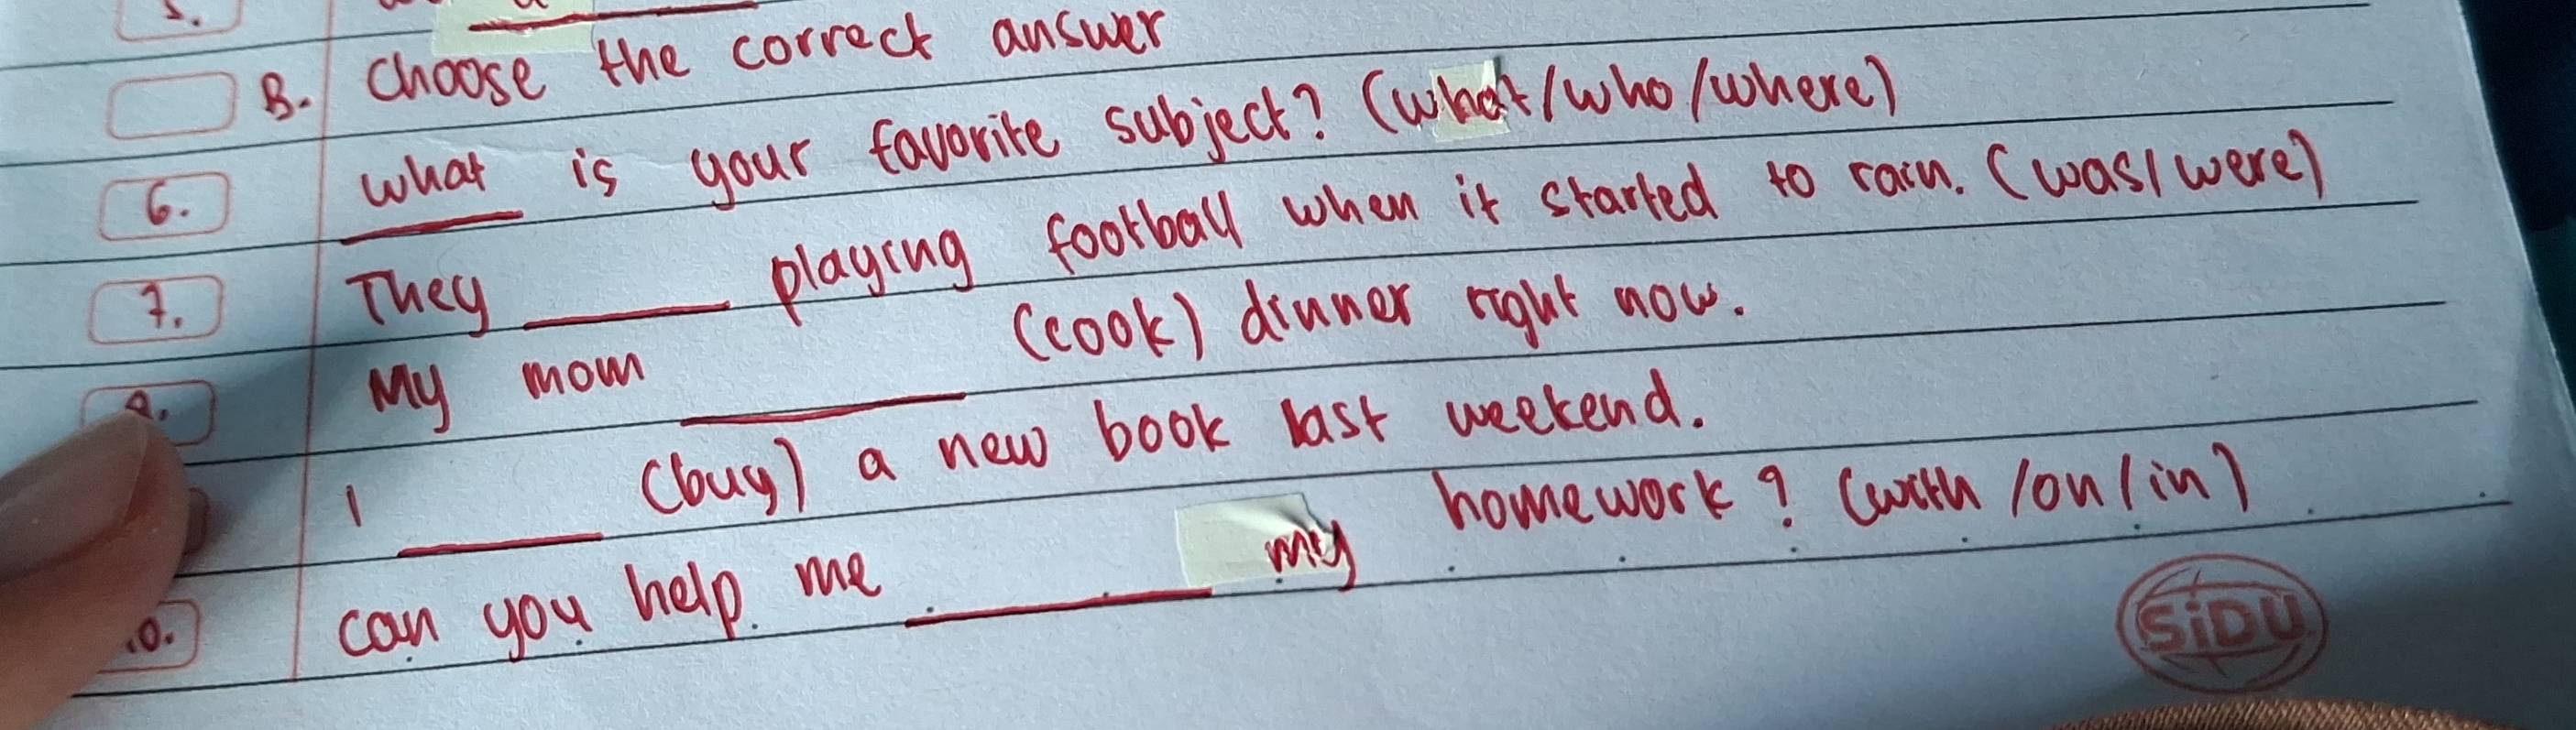 5.
B. Choose the correct answer
6. what is your favorite subject? (what/who/where)
7. They ______ playing football when it started to rain. (was/were)
8. My mom ______ (cook) dinner right now.
I ______ (buy) a new book last weekend.
10. can you help me ______ my homework? (with/on/in)
SiDU